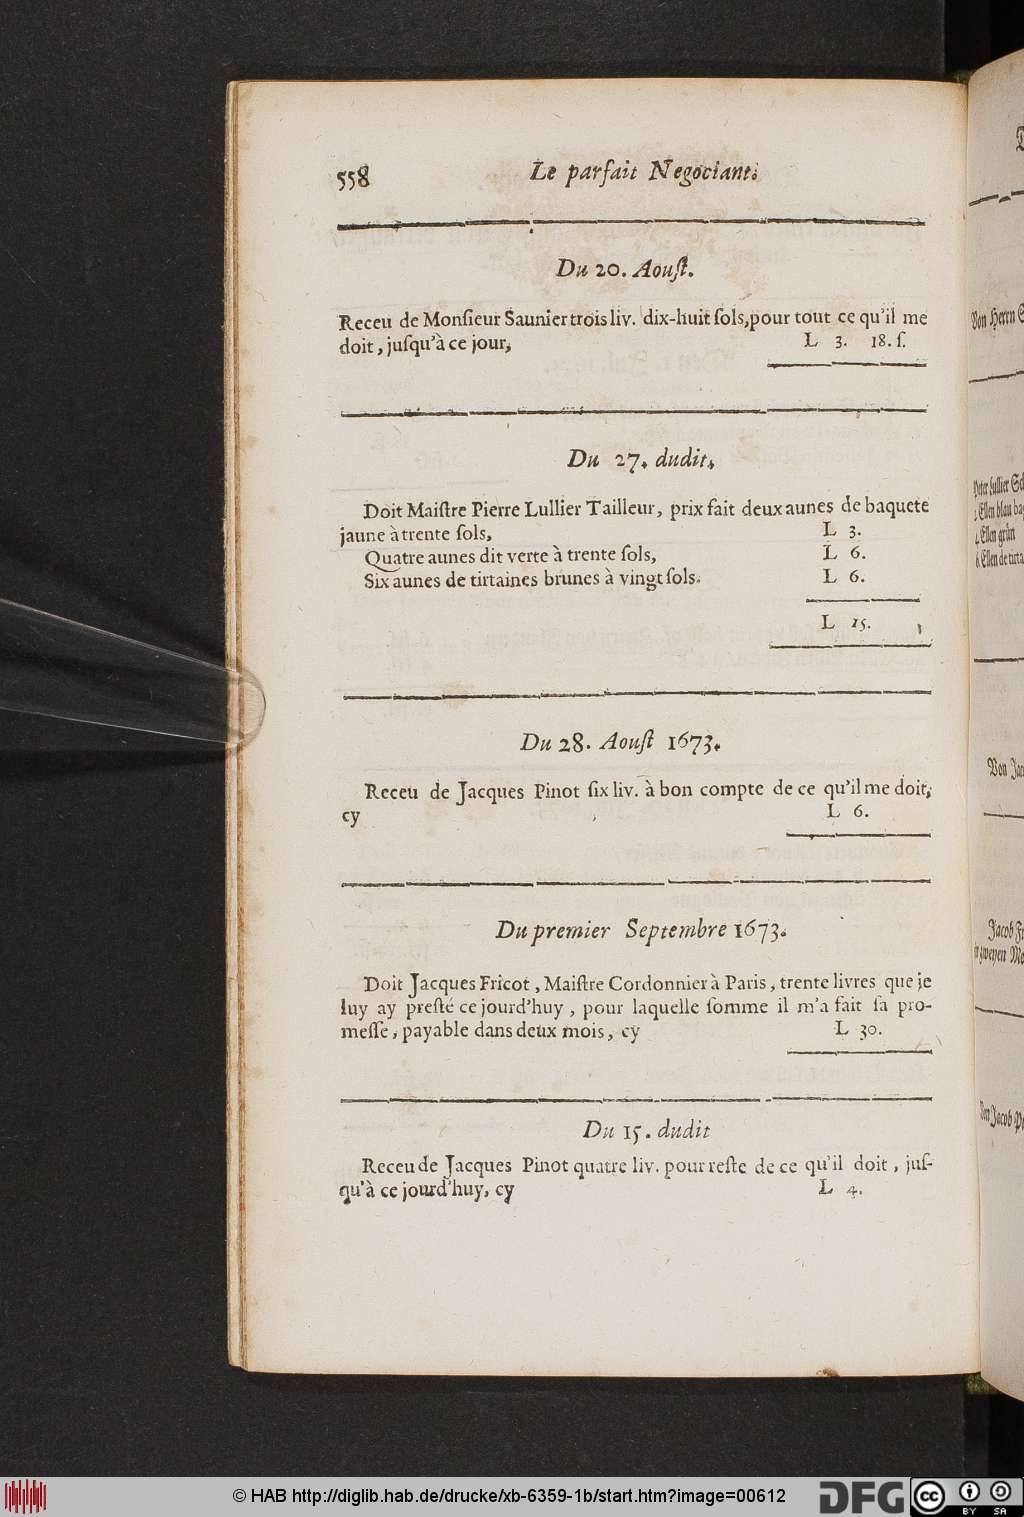 558 Le parfait Negociant.
Du 20. Aouſt.
Receu de Monſieur Saunier trois liv. dix-huit ſols, pour tout ce qu'il me
doit, juſqu'à ce jour, L 3. 18. ſ.
Du 27. dudit.
Doit Maiſtre Pierre Lullier Tailleur, prix fait deux aunes de baquete
jaune à trente ſols, L 3.
Quatre aunes dit verte à trente ſols, L 6.
Six aunes de tirtaines brunes à vingt ſols. L 6.
L 15.
Du 28. Aouſt 1673.
Receu de Jacques Pinot ſix liv. à bon compte de ce qu'il me doit,
cy L 6.
Du premier Septembre 1673.
Doit Jacques Fricot, Maiſtre Cordonnier à Paris, trente livres que je
luy ay preſté ce jourd'huy, pour laquelle ſomme il m'a fait ſa pro-
meſſe, payable dans deux mois, cy L 30.
Du 15. dudit
Receu de Jacques Pinot quatre liv. pour reſte de ce qu'il doit, juſ-
qu'à ce jourd'huy, cy L 4.
Von Herrn
Ellen blau
4. Ellen grün
Von
Jacob
© HAB http://diglib.hab.de/drucke/xb-6359-1b/start.htm?image=00612
DFG
cc
BY SA